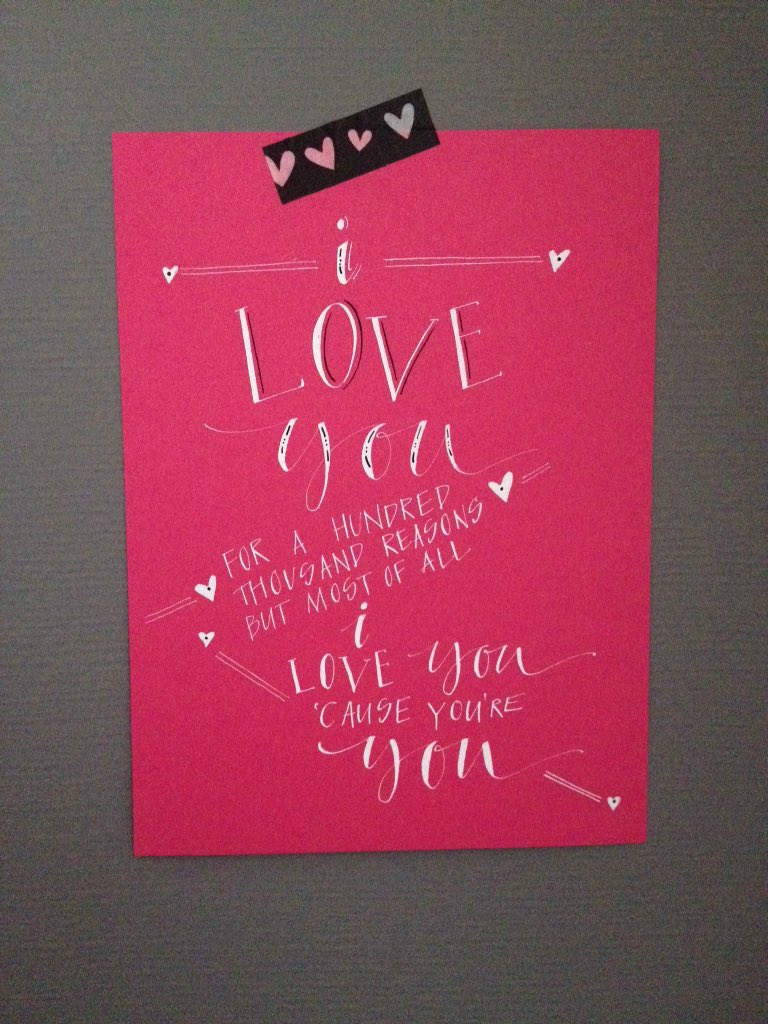 i
LOVE
you
FOR A HUNDRED
THOUSAND REASONS
BUT MOST OF ALL
i
LOVE you
'CAUSE YOU'RE
you